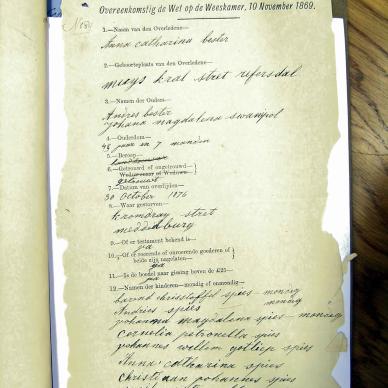 Overeenkomstig de Wet op de Weeskamer, 10 November 1869.
1.—Naam van den Overledene—
Anna catharina bester
2.—Geboorteplaats van den Overledene—
kral stret refersdal
3.—Namen der Ouders—
Andries bester
johana magdalena swanpol
4.—Ouderdom—
46 jaar en 7 manden
5.—Beroep—
6.—Getrouwd of ongetrouwd—
Weduwenaar of Weduwe—
getrouwt
7.—Datum van overlijden—
30 October 1876
8.—Waar gestorven—
kromdray stret
meddelburg
9.—Of er testament bekend is—
ja
10.—Of er roerende of onroerende goederen of
beide zijn nagelaten—
ja
11.—Is de boedel naar gissing boven de £20—
ja
12.—Namen der kinderen—mondig of onmondig—
barend christoffel spies - mondig
Andries spies mondig
johanna magdalena spies - mondig
Cornelia petronella spies
johannes willem gotliep spies
Anna catharina spies
Christiaan johannes spies